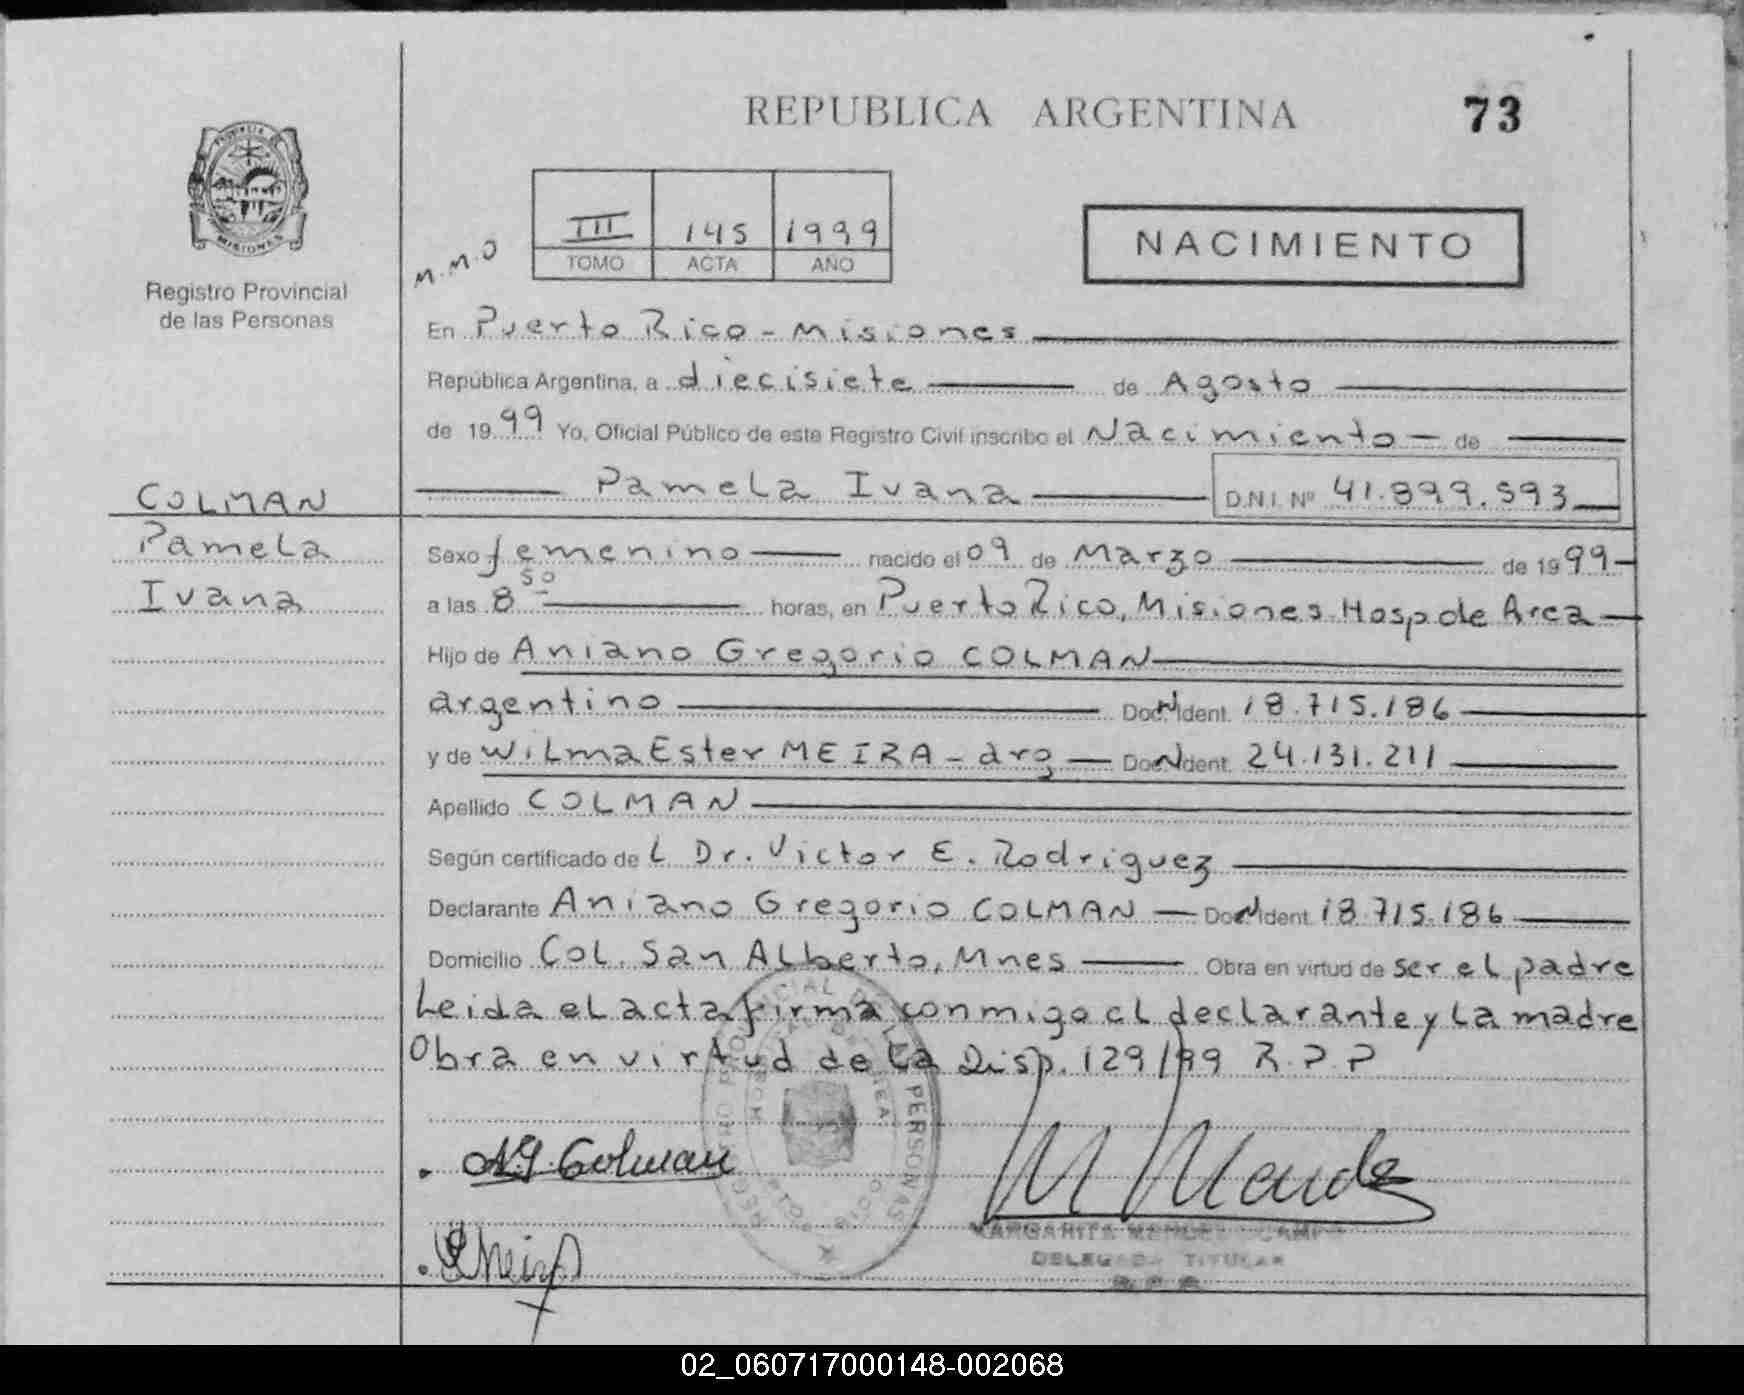 REPUBLICA ARGENTINA
73
PROVINCIA DE
MISIONES
Registro Provincial
de las Personas
M.M.O
III 145 1999
TOMO ACTA AÑO
NACIMIENTO
En Puerto Rico - Misiones
República Argentina, a diecisiete de Agosto
de 1999 Yo, Oficial Público de este Registro Civil inscribo el Nacimiento - de
Pamela Ivana D.N.I. Nº 41.899.593
COLMAN
Pamela
Ivana
Sexo femenino nacido el 09 de Marzo de 1999
a las 8 50 horas, en Puerto Rico, Misiones. Hosp de Area
Hijo de Aniano Gregorio COLMAN
argentino Doc. N Ident. 18.715.186
y de Wilma Ester MEIRA - arg Doc N Ident. 24.131.211
Apellido COLMAN
Según certificado de L Dr. Victor E. Rodriguez
Declarante Aniano Gregorio COLMAN Doc N Ident. 18.715.186
Domicilio Col. San Alberto, Mnes Obra en virtud de ser el padre
Leida el acta firma conmigo el declarante y la madre
Obra en virtud de la Disp. 129/99 R.P.P
REGISTRO PROVINCIAL DE LAS PERSONAS
A G Colman
Meira
M Mende
MARGARITA
DELEGADA TITULAR
R.P.P.
02_060717000148-002068